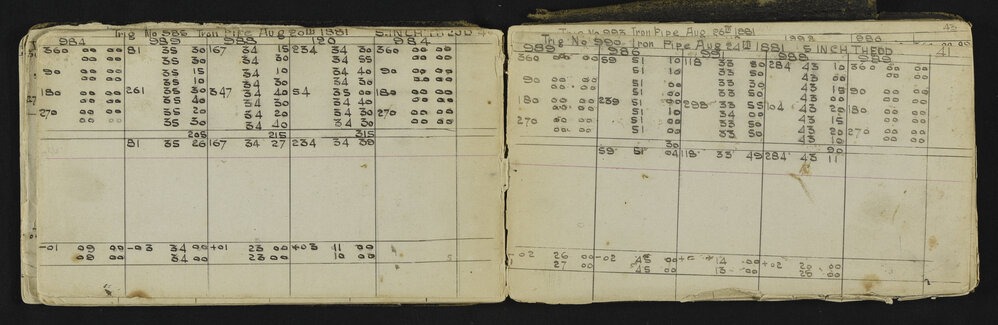 Trig No 985 Iron Pipe Aug 20th 1881 5 INCH THEOD
984 989 988 120 984
360 00 00 81 35 30 167 34 15 234 34 30 360 00 00
00 00 35 30 34 30 34 55 00 00
90 00 00 35 15 34 10 34 40 90 00 00
00 00 35 10 34 30 34 30 00 00
180 00 00 261 35 30 347 34 40 54 35 00 180 00 00
00 00 35 40 34 30 34 40 00 00
270 00 00 35 20 34 20 34 30 270 00 00
00 00 35 30 34 40 34 30 00 00
205 215 315
81 35 26 167 34 27 234 34 39
-01 09 00 -03 34 00 +01 23 00 +03 11 00
09 00 34 00 23 00 10 00
Trig No 993 Iron Pipe Aug 26th 1881 43
Trig No 990 Iron Pipe Aug 24th 1881 5 INCH THEOD 41
989 986 991 988 989
360 00 00 59 51 10 118 33 50 284 43 10 360 00 00
00 00 51 10 33 30 43 10 00 00
90 00 00 51 10 33 50 43 00 90 00 00
180 00 00 239 51 298 33 55 104 43 20 180 00 00
270 00 00 51 00 33 50 43 20 270 00 00
59 51 04 118 33 49 284 43 11
-02 26 00 -02 45 00 14 00 +02 20 00
27 00 45 00 13 00 20 00